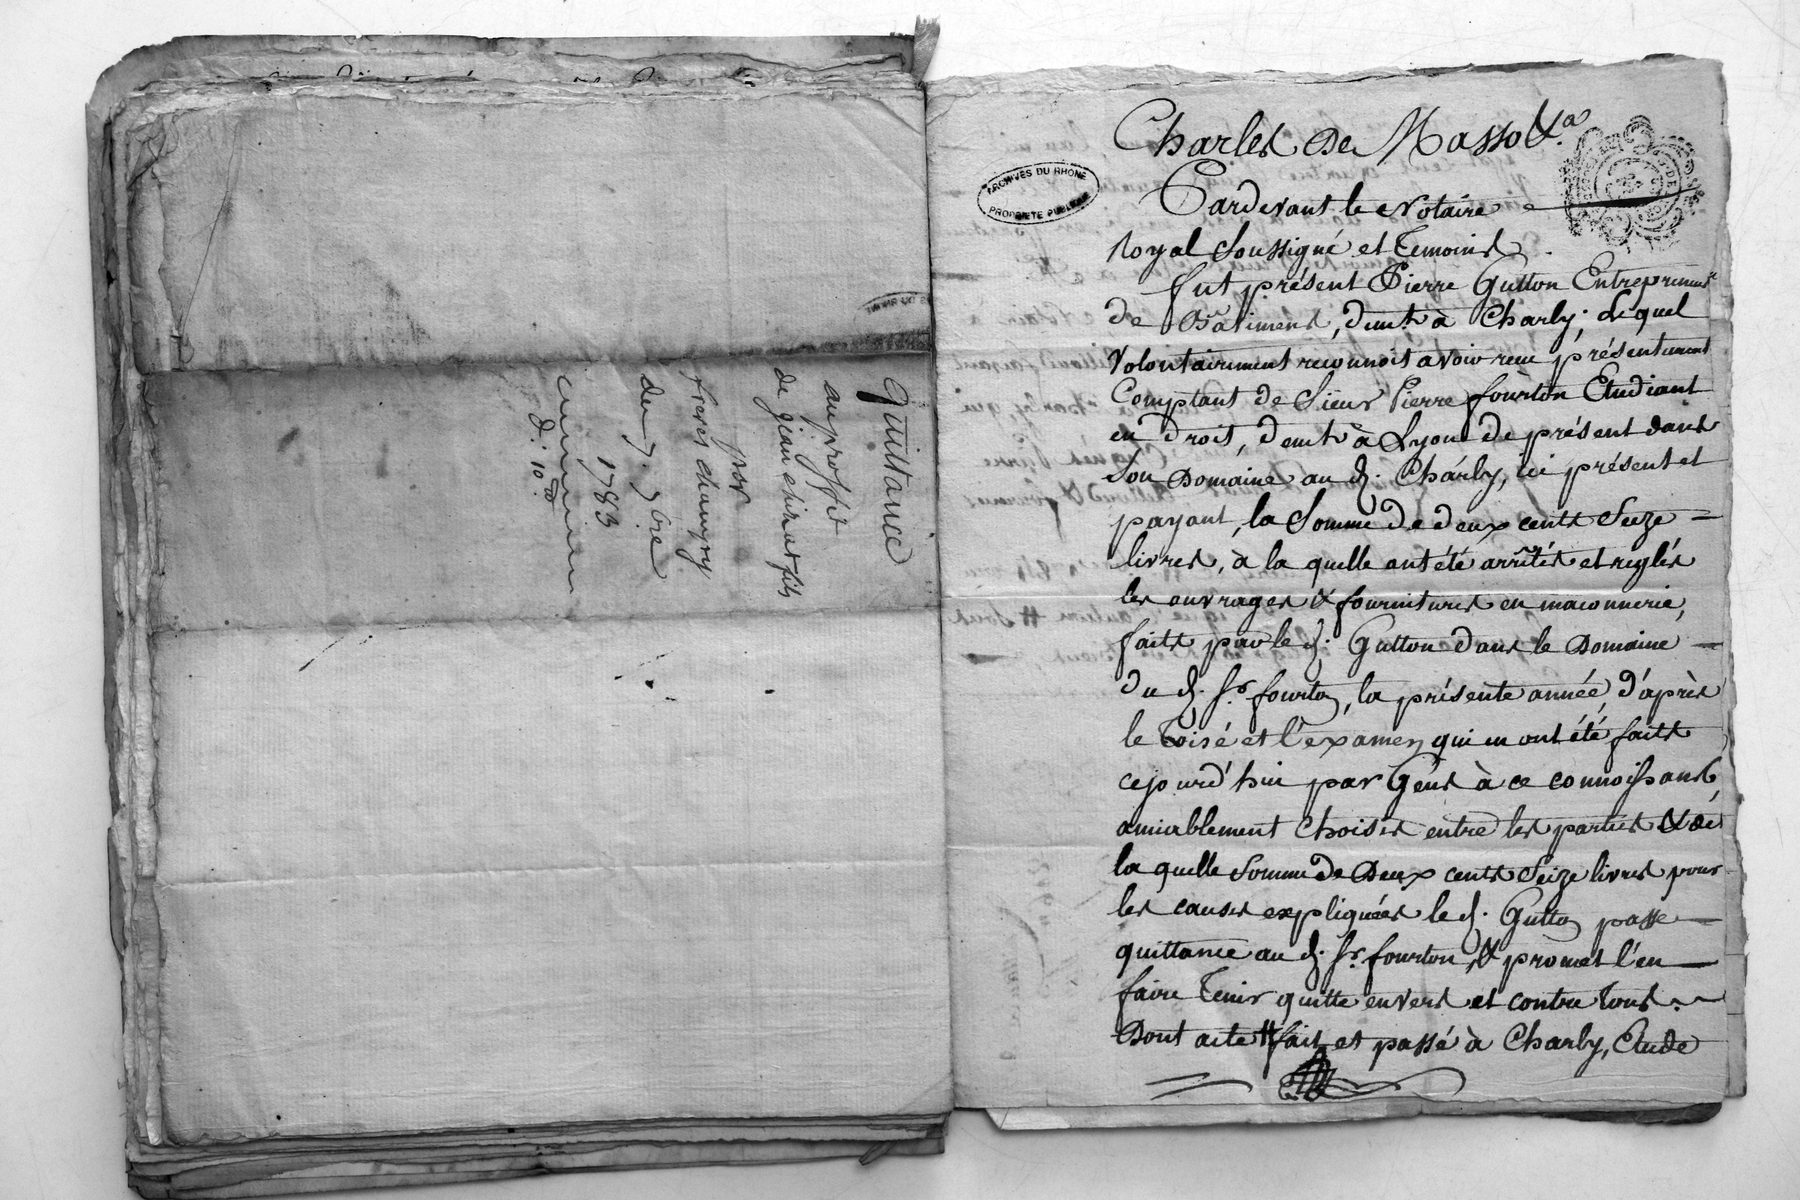 Quittance
au proffit
de jean chirat fils
par
freres champry
du 7 7bre
1783
ARCHIVES DU RHONE
PROPRIETE PUBLIQUE
Charles De Masso &.a
Pardevant le Notaire
Royal Soussigné et Temoins
fut présent Pierre Gutton Entrepreneur
de Bâtimens, demt. à Charly; Lequel
Volontairement reconnoit avoir reçu présentement
Comptant de Sieur Pierre fourton Etudiant
en droit, demt. à Lyon de présent dans
Son Domaine au d. Charly, ici présent et
payant, la Somme de deux cents Seize
livres, à la quelle ont été arrêtés et reglés
les ouvrages & fournitures en maçonnerie,
faits par le d. Gutton dans le Domaine
du d. Sr. fourton, la présente année, d'après
le Toisé et l'examen qui en ont été faits
cejourd'hui par Gens à ce connoissants,
amiablement choisis entre les parties & de
la quelle Somme de Deux cents Seize livres pour
les causes expliquées le d. Gutton passe
quittance au d. Sr. fourton, & promet l'en
faire Tenir quitte envers et contre Tous.
Dont acte fait et passé à Charly, Etude